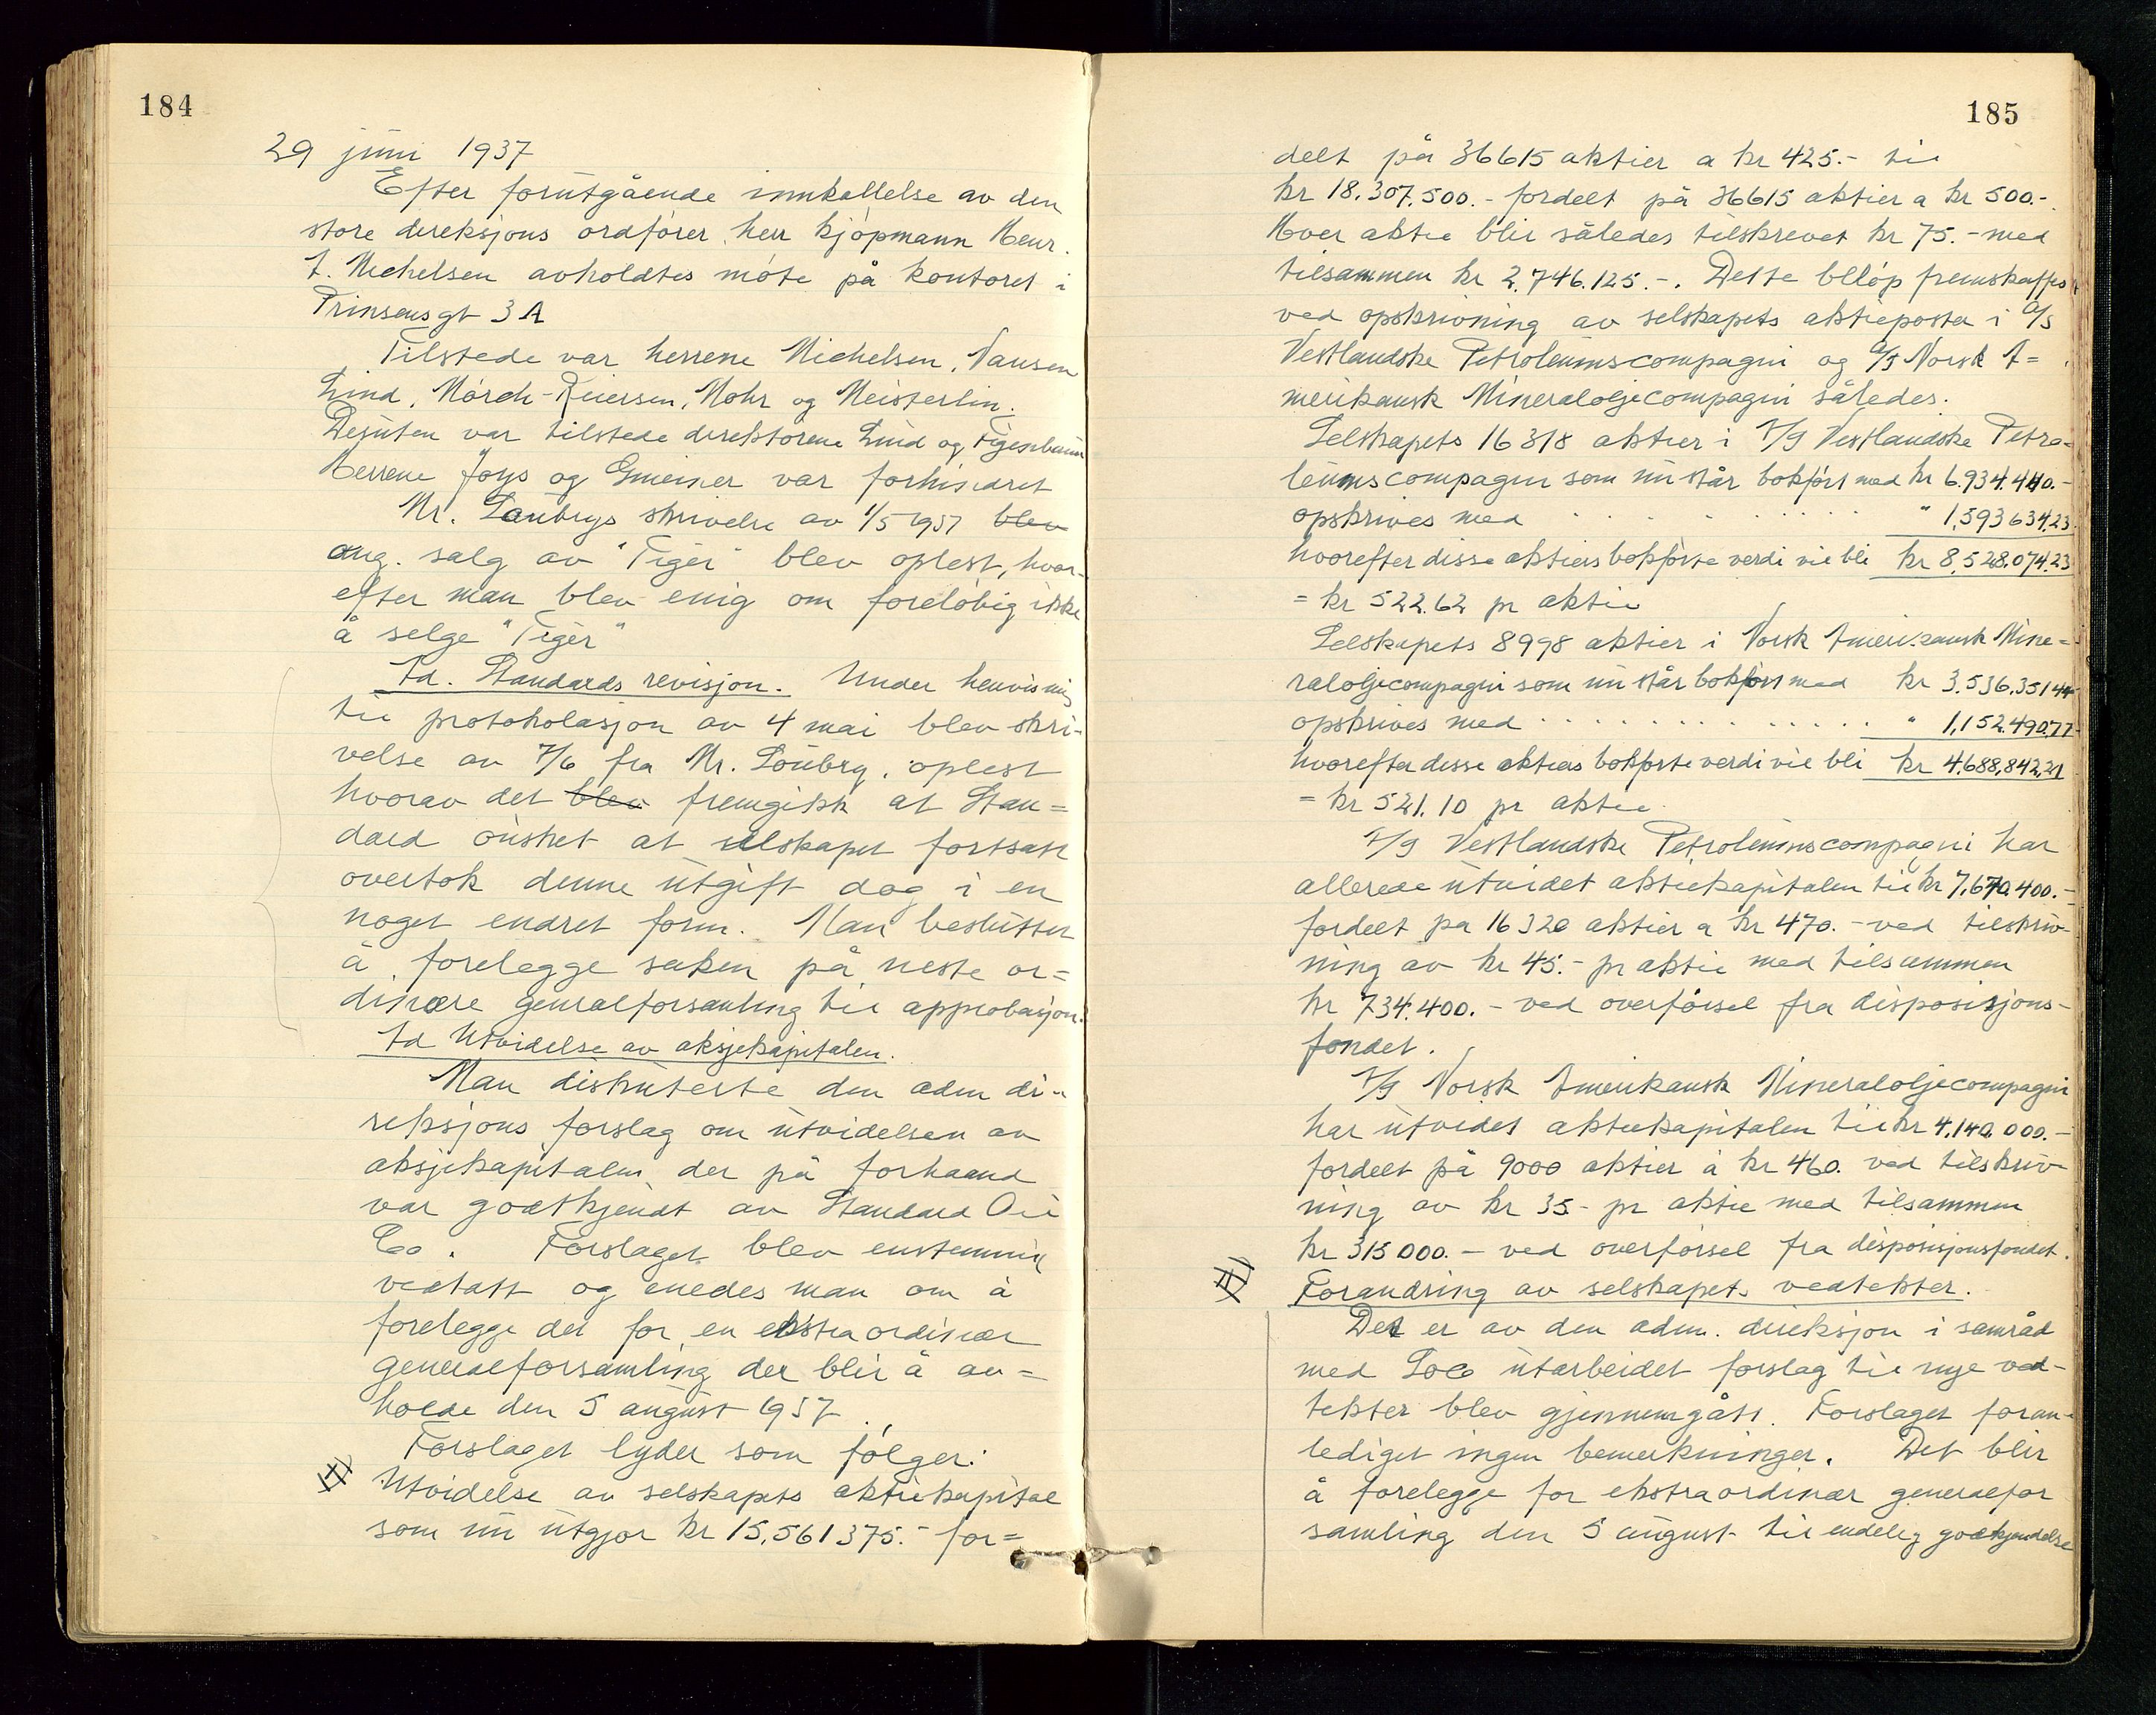 184
29 juni 1937
Efter forutgående innkallelse av den
store direksjons ordfører herr kjøpmann Henr.
A. Michelsen avholdtes møte på kontoret i
Prinsensgt 3A
Tilstede var herrene Michelsen, Nansen
Lind, Mørch-Reiersen, Mohr og Meisterlin.
Desuten var tilstede direktørene Lind og Figenbaum
Herrene Joys og Gmeiner var forhindret
Mr. skrivelse av 1/5 1937 blev
ang. salg av "Tiger" blev oplest, hvor-
efter man blev enig om foreløbig ikke
å selge "Tiger"
Ad. Standards revisjon. Under henvisning
til protokolasjon av 4 mai blev skri-
velse av 7/6 fra Mr. oplest
hvorav det blev fremgikk at Stan=
dard ønsket at selskapet fortsatt
overtok denne utgift dog i en
noget endret form. Man besluttet
å forelegge saken på neste or=
dinære generalforsamling til approbasjon.
Ad Utvidelse av aksjekapitalen.
Man diskuterte den adm di-
reksjons forslag om utvidelsen av
aksjekapitalen der på forhaand
var godkjendt av Standard Oil
Co. Forslaget blev enstemmig
vedtatt og enedes man om å
forelegge det for en ekstraordinær
generalforsamling der blir å av=
holde den 5 august 1937.
Forslaget lyder som følger:
I) Utvidelse av selskapets aktiekapital
som nu utgjør kr 15,561375.- for=
185
delt på 36615 aktier a kr 425.- til
kr 18.307.500.- fordelt på 36615 aktier a kr 500.-
Hver aktie blir således tilskrevet kr 75.- med
tilsammen kr 2.746.125.-. Dette beløp fremskaffes
ved opskrivning av selskapets aktieposter i A/S
Vestlandske Petroleumscompagni og A/S Norsk A=
merikansk Mineraloljecompagni således:
Selskapets 16318 aktier i A/S Vestlandske Petro=
leumscompagni som nu står bokført med kr 6.934.440.-
opskrives med . . . . . . . . " 1,593634,23
hvorefter disse aktiers bokførte verdi vil bli kr 8,528.074.23
= kr 522.62 pr aktie
Selskapets 8998 aktier i Norsk Amerikansk Mine=
raloljecompagni som nu står bokført med kr 3.536.35144
opskrives med . . . . . . . . . . " 1,152.490.77
hvorefter disse aktiers bokførte verdi vil bli kr 4.688,842,21
= kr 521.10 pr aktie.
A/S Vestlandske Petroleumscompagni har
allerede utvidet aktiekapitalen til kr 7,670.400.-
fordelt på 16320 aktier a kr 470.- ved tilskriv-
ning av kr 45.- pr aktie med tilsammen
kr 734.400.- ved overførsel fra disposisjons-
fondet.
A/S Norsk Amerikansk Mineraloljecompagni
har utvidet aktiekapitalen til kr 4,140,000.-
fordelt på 9000 aktier à kr 460. ved tilskriv-
ning av kr 35.- pr aktie med tilsammen
kr 315000.- ved overførsel fra disposisjonsfondet.
II) Forandring av selskapets vedtekter.
Det er av den adm. direksjon i samråd
med utarbeidet forslag til nye ved-
tekter blev gjennemgått. Forslaget foran-
lediget ingen bemerkninger. Det blir
å forelegge for ekstraordinær generalfor
samling den 5 august til endelig godkjendelse